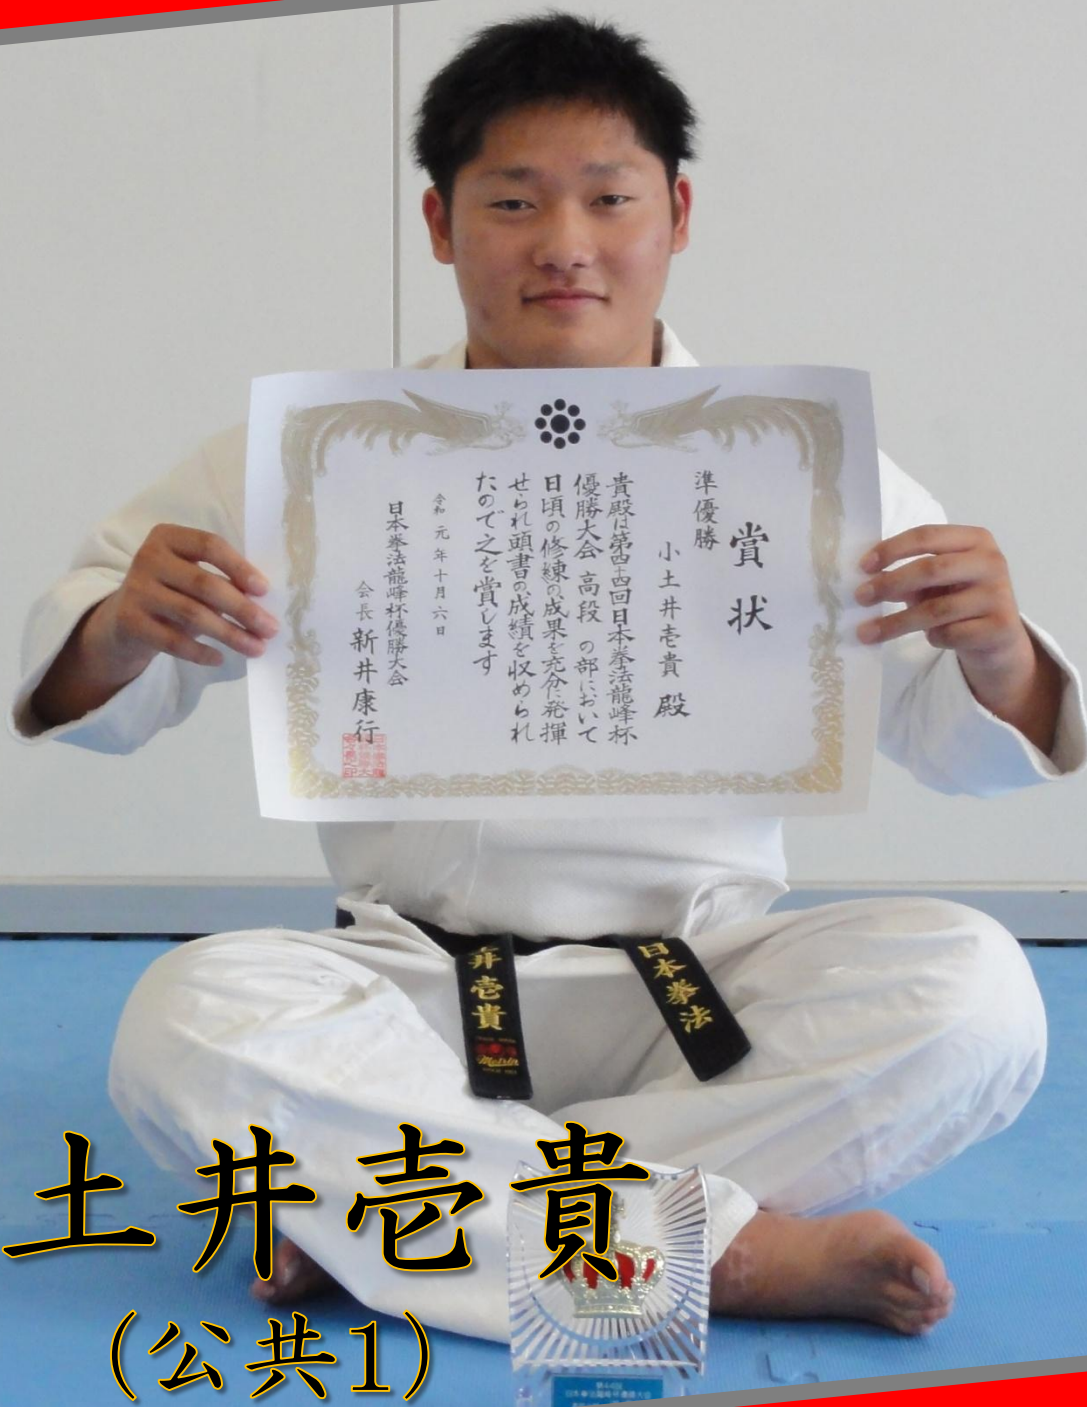 賞状
準優勝
小土井壱貴 殿
貴殿は第四十四回日本拳法龍峰杯
優勝大会 高段 の部において
日頃の修練の成果を充分に発揮
せられ頭書の成績を収められ
たので之を賞します
令和元年十月六日
日本拳法龍峰杯優勝大会
会長 新井康行
井壱貴
日本拳法
土井壱貴
(公共1)